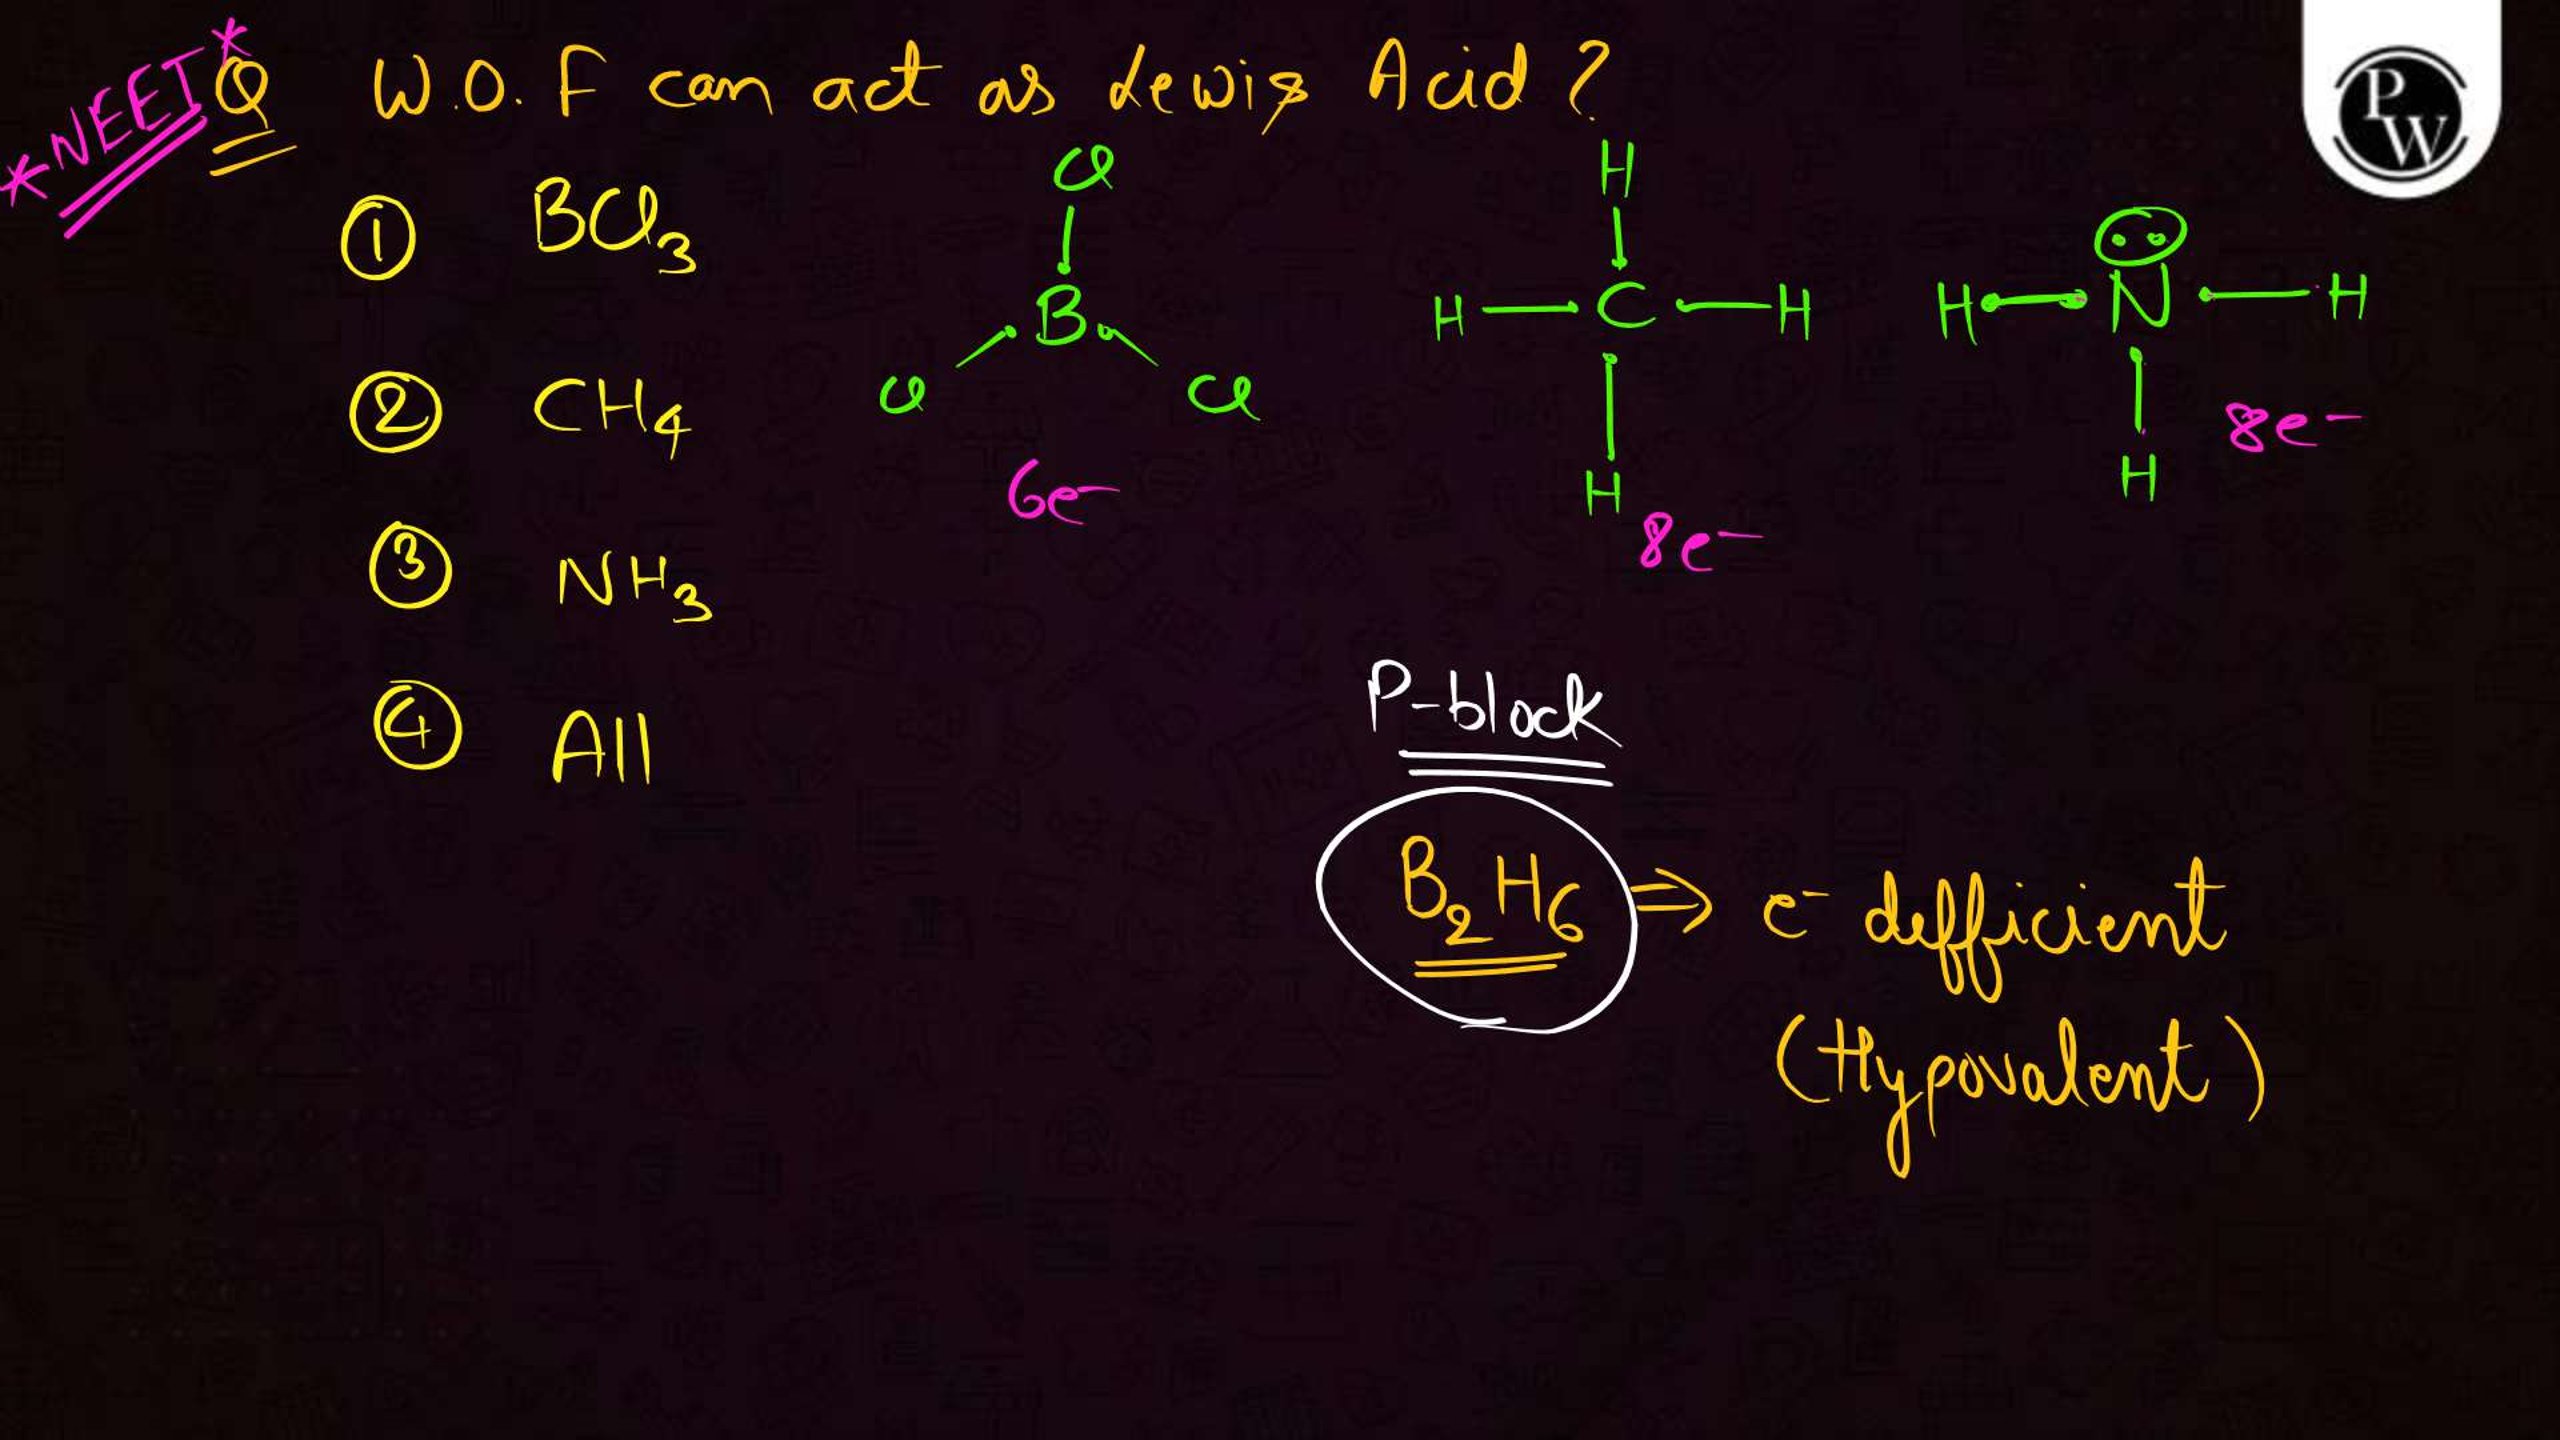 *NEET*
Q W.O.F can act as Lewis Acid ?
① BCl₃
② CH₄
③ NH₃
④ All
Cl
B
Cl Cl
6e⁻
H
H C H
H
8e⁻
H N H
H
8e⁻
P-block
B₂H₆ ⇒ e⁻ defficient
(Hypovalent)
PW